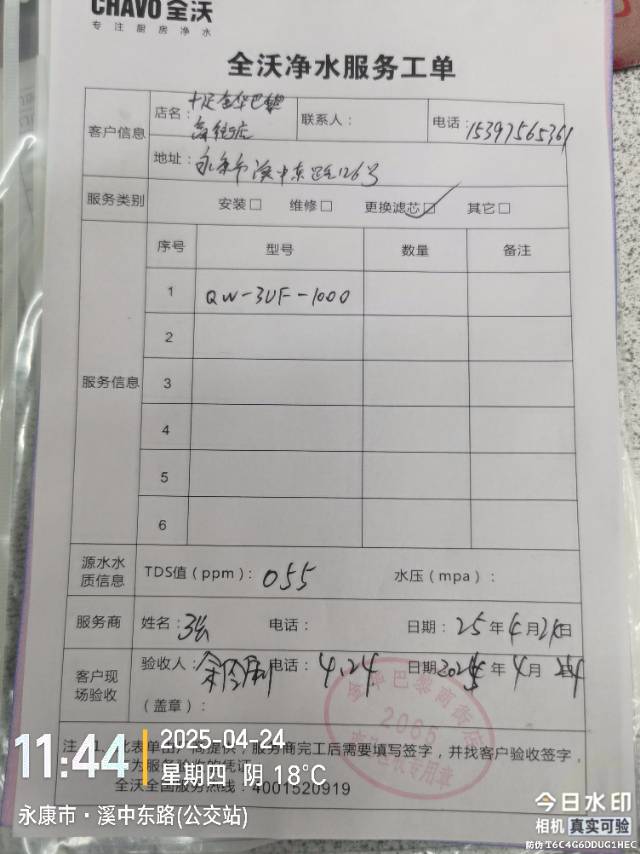 CHAVO 全沃
专注厨房净水
全沃净水服务工单
客户信息
店名：
联系人：
电话：15397565761
地址：永康市溪中东路126号
服务类别 安装□ 维修□ 更换滤芯☑ 其它□
服务信息
序号 型号 数量 备注
1 QW-3UF-1000
2
3
4
5
6
源水水质信息
TDS值（ppm）：055 水压（mpa）：
服务商 姓名： 电话： 日期：25年4月24日
客户现场验收
验收人： 电话：4.24 日期2025年4月24
（盖章）：
2065
注：1、此表单由厂商提供，服务商完工后需要填写签字，并找客户验收签字，
作为服务验收的凭证
全沃全国服务热线：4001520919
11:44
2025-04-24
星期四 阴 18℃
永康市·溪中东路(公交站)
今日水印
相机 真实可验
防伪 T6C4G6DDUG1HEC